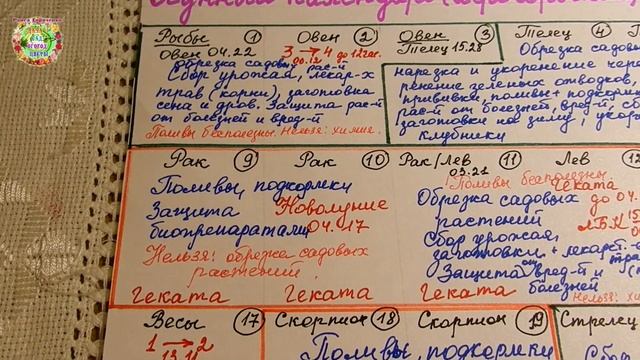 Лунный календарь
Рыбы 1 Овен 2 Овен 3 Телец 4
Овен 04.22 3 → 4 до 12 час. Телец 15.28
00.12
Обрезка садов. раст-й
Сбор урожая, лекар-х
трав (корни), заготовка
сена и дров. Защита рас-й
от болезней и вред-й
Поливы бесполезны. Нельзя: химия.
Обрезка садов
нарезка и укоренение чере
рение зеленых отводков.
прививки, поливы + подкормки
рас-й от болезней, вред-й, сб
заготовки на зиму, укор
клубники
Рак 9 Рак 10 Рак/Лев 11 Лев 12
03.21
Поливы, подкормки
Защита Новолуние
биопрепаратами 04.17
Нельзя: обрезка садовых
растений
Геката Геката Геката
Поливы бесполезны
Геката
Обрезка садовых до 04.
растений
Сбор урожая,
заготовки, лекарст.
Защита от вред-й и
болезней
Нельзя:
Весы 17 Скорпион 18 Скорпион 19 Стрелец
1 → 2
13.
Поливы, подкормки
Сбор